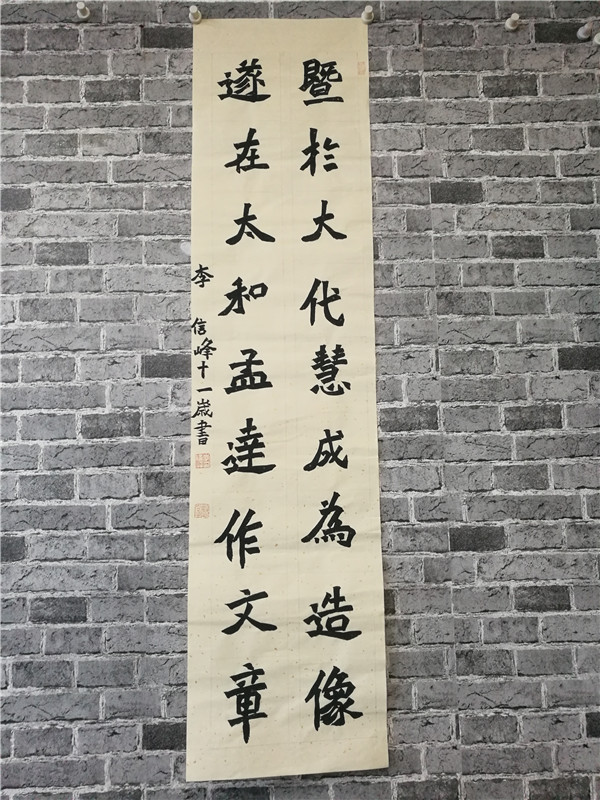 暨於大代慧成為造像
遂在太和孟達作文章
李信峰十一歲書